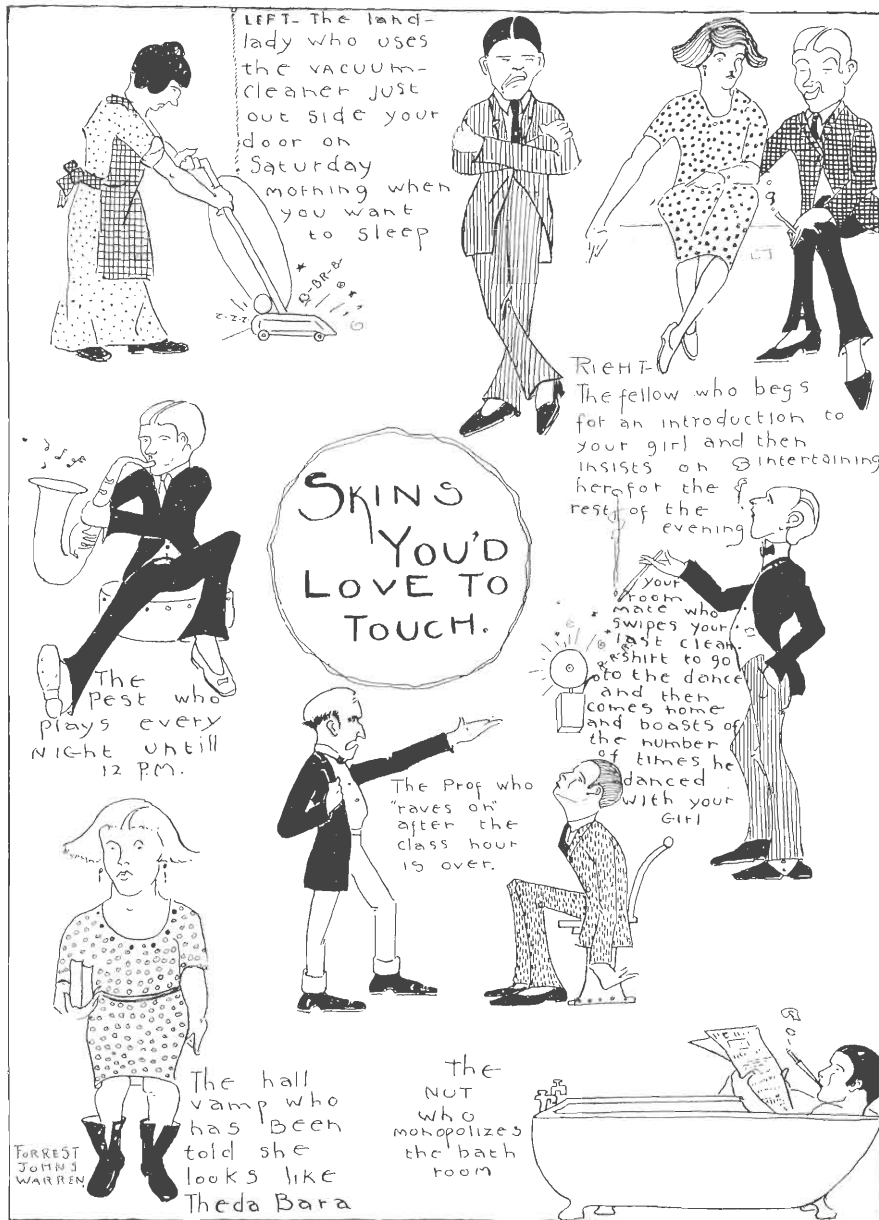 LEFT- The land-
lady who uses
the vacuum-
cleaner just
out side your
door on
Saturday
morning when
you want
to sleep
B-BR-B-
Z-Z-Z-
RIGHT-
The fellow who begs
for an introduction to
your girl and then
insists on intertaining
her for the
rest of the
evening
SKINS
YOU'D
LOVE TO
TOUCH.
The
Pest who
plays every
NIGHT untill
12 P.M.
your
room
mate who
swipes your
last clean
shirt to go
to the dance
and then
comes home
and boasts of
the number
of times he
danced
with your
GIRL
R-R-R-
The Prof who
"raves on"
after the
class hour
is over.
The hall
vamp who
has BEEN
told she
looks like
Theda Bara
FORREST
JOHNS
WARREN
the
NUT
who
monopolizes
the bath
room